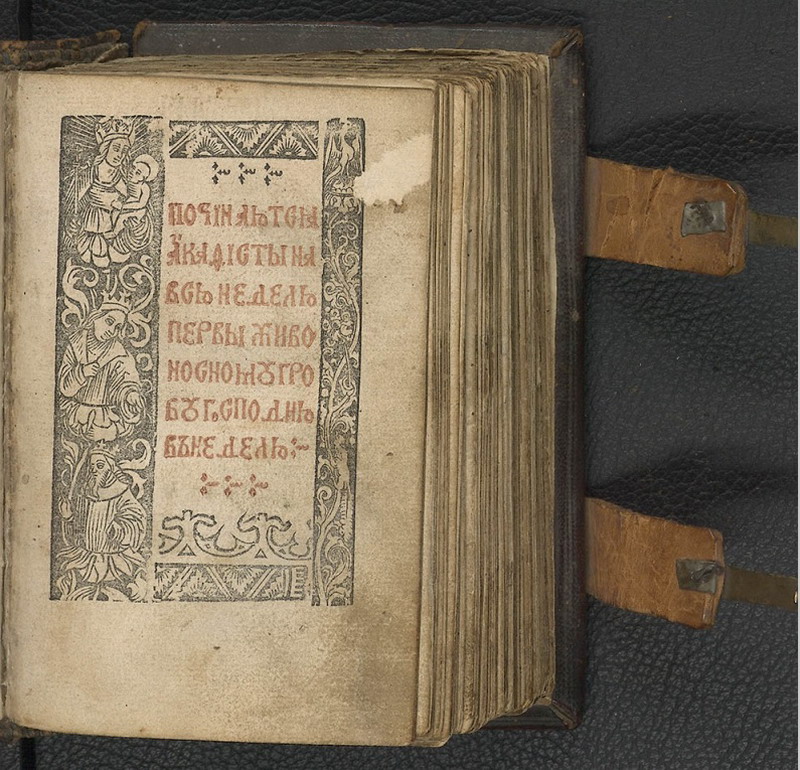 ПОЧІНАЮТСІА
АКАѲІСТЫ НА
ВСЮ НЕДЕЛЮ
ПЕРВЫ ЖИВО
НОСНОМꙊ ГРО
БꙊ ГОСПОДНЮ
ВЪ НЕДЕЛЮ:~